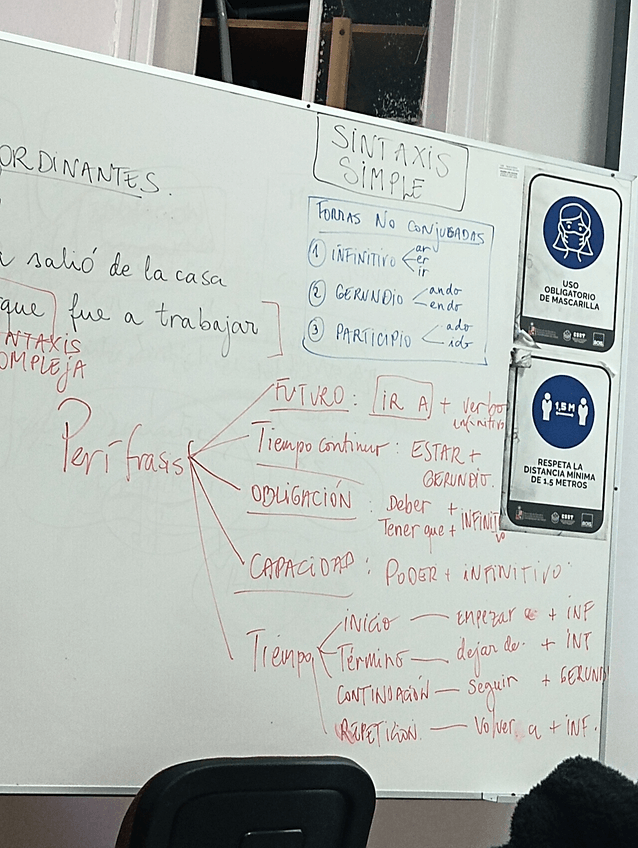 ORDINANTES.
salió de la casa
que fue a trabajar
NTAXIS
OMPLEJA
SINTAXIS
SIMPLE
FORMAS NO CONJUGADAS
1 INFINITIVO ar
er
ir
2 GERUNDIO ando
endo
3 PARTICIPIO ado
ido
Perífrasis
FUTURO: IR A + verbo
infinitivo
Tiempo continuo: ESTAR +
GERUNDIO.
OBLIGACIÓN: Deber +
Tener que + INFINITIVO
CAPACIDAD: PODER + INFINITIVO
Tiempo
INICIO — empezar a + INF
Término — dejar de + INT
CONTINUACIÓN — Seguir + GERUNDI
REPETICIÓN. — Volver a + INF.
USO
OBLIGATORIO
DE MASCARILLA
1,5 M
RESPETA LA
DISTANCIA MÍNIMA
DE 1.5 METROS